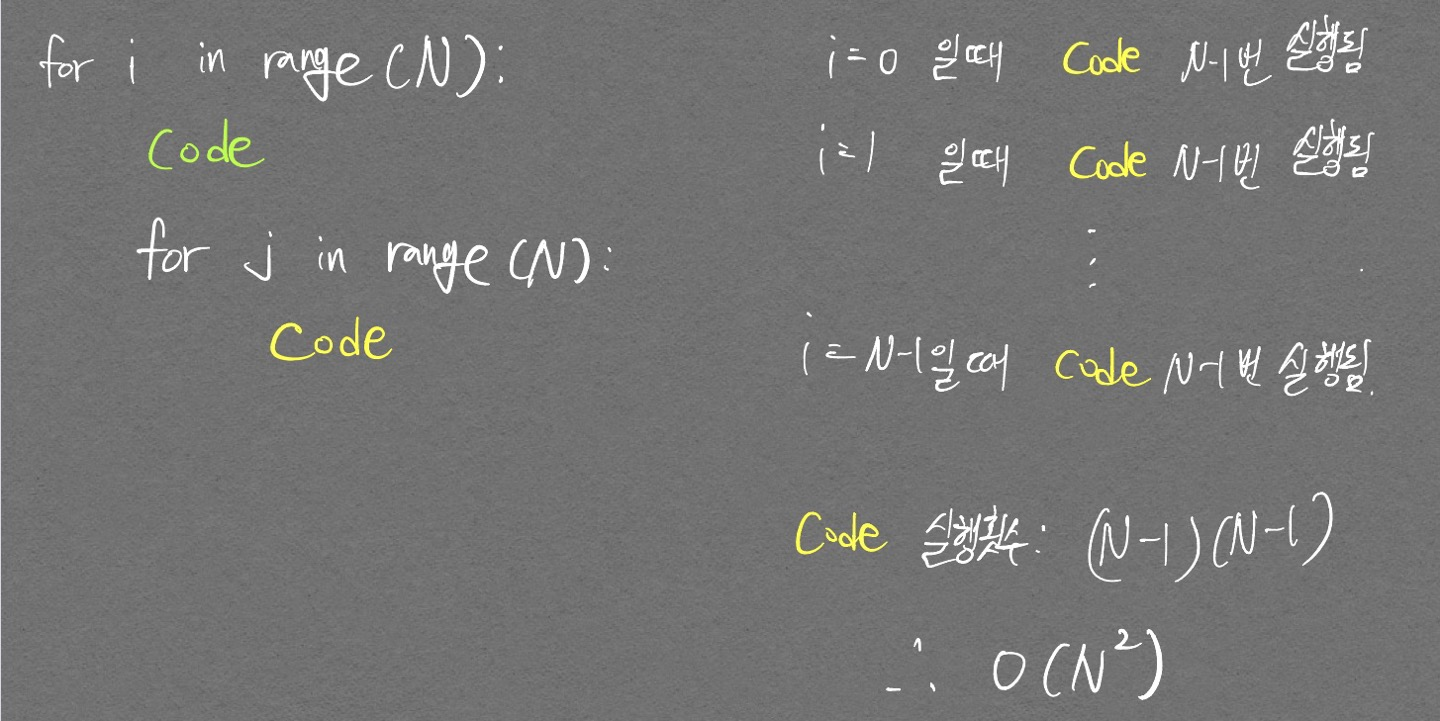 for i in range(N):
Code
for j in range(N):
Code
i=0 일때 Code N-1번 실행됨
i=1 일때 Code N-1번 실행됨
⋮
i=N-1일때 Code N-1번 실행됨.
Code 실행횟수: (N-1)(N-1)
∴ O(N²)